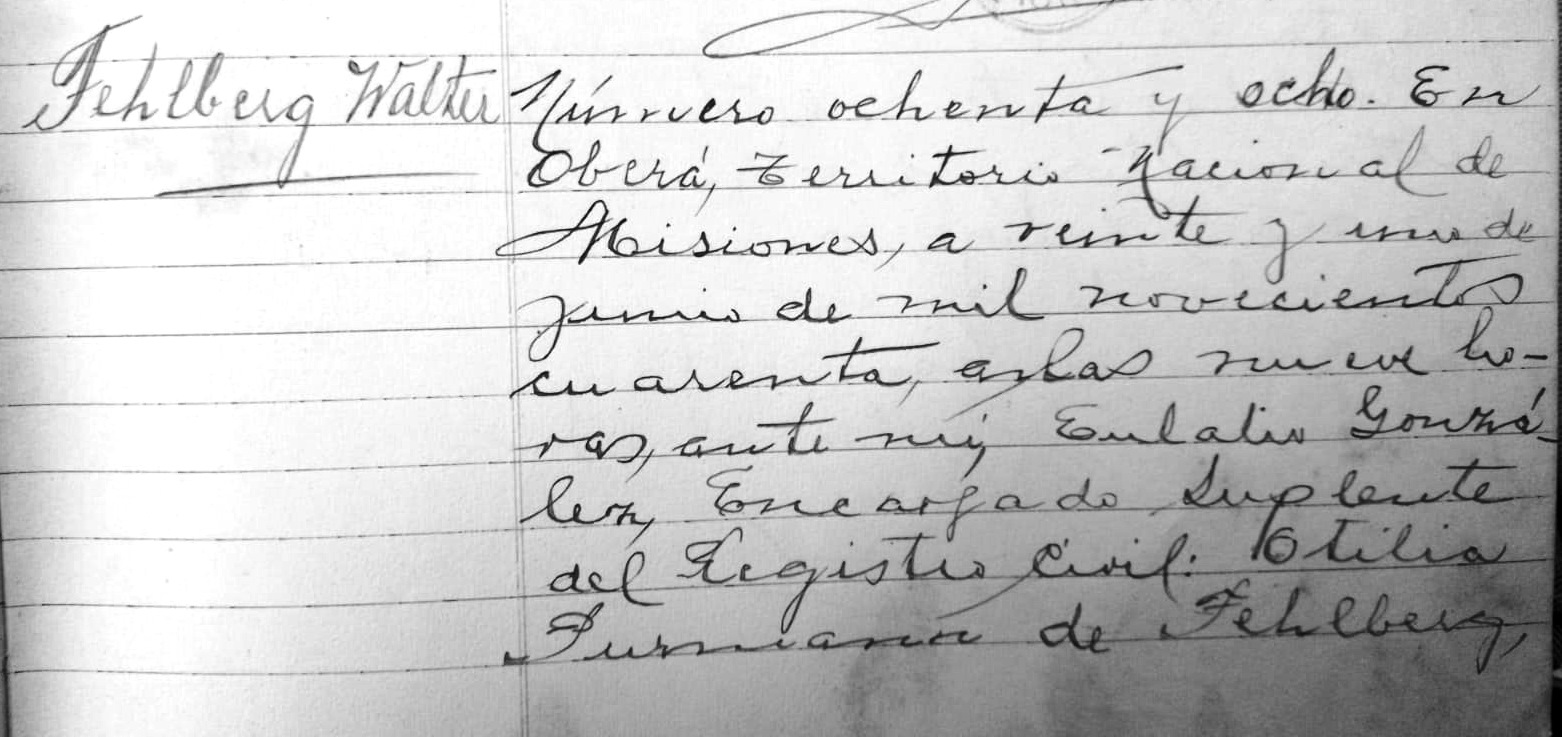 Fehlberg Walter
Número ochenta y ocho. En
Oberá, territorio Nacional de
Misiones, a veinte y uno de
junio de mil novecientos
cuarenta, a las nueve ho-
ras, ante mí, Eulalio Gonzá-
lez, Encargado Suplente
del Registro Civil: Otilia
de Fehlberg,